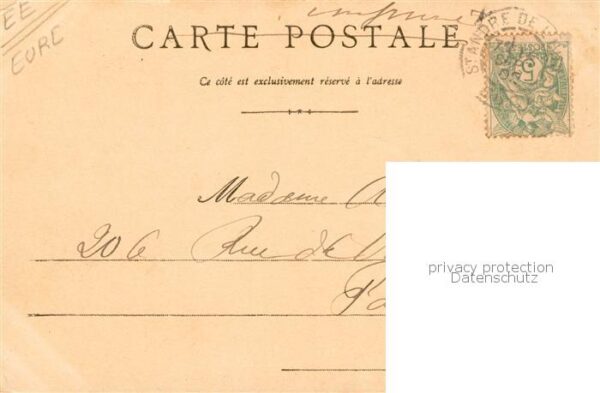 EE
EURE
imprimé
CARTE POSTALE
Ce côté est exclusivement réservé à l'adresse
ST ANDRE DE
5
Madame
206 Rue de V
Pa
privacy protection
Datenschutz